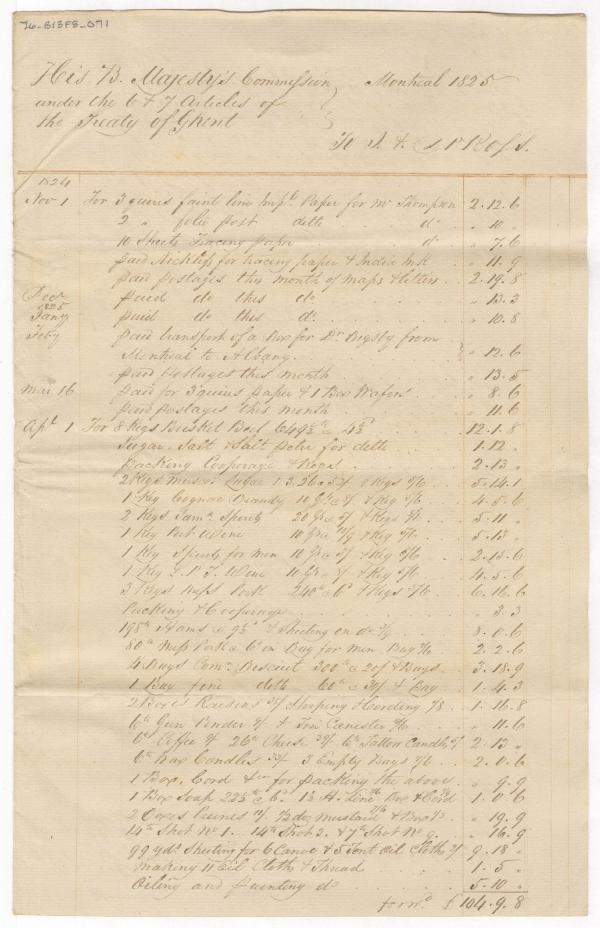 76-S13F8-071
His B. Majesty's Commission Montreal 1825
under the 6 & 7 Articles of
the Treaty of Ghent
To J. & Ross.
1824
Nov 1 For 3 quires faint line Impl. Paper for Mr Thompson 2.12.6
2 " folio post ditto do " 10 "
10 Sheets Tracing paper do " 7.6
paid for tracing paper & India Ink " 11.9
paid postages this month of maps & letters 2.19.8
Decr paid do this do " 13.3
1825
Jany paid do this do " 10.8
Feby paid transport of a Box for Dr Bigsby from
Montreal to Albany. " 12.6
paid postages this month " 13.5
Mar 16 paid for 3 quires paper & 1 Box Wafers " 8.6
paid postages this month " 11.6
Apl 1 For 8 Kegs Beef 12.1.8
Sugar, Salt & Salt petre for ditto 1.12 "
Packing Cooperage & Kegs 2.13 "
2 Kegs Sugar & Kegs 5.14.1
1 Keg Cognac Brandy 10 & Keg 4.5.6
2 Kegs Jama Spirits 20 & Kegs 5.11 "
1 Keg Port Wine 10 & Keg 5.13 "
1 Keg Spirits for men 10 & Keg 2.15.6
1 Keg L. P. T. Wine 10 & Keg 4.5.6
3 Kegs Mess Pork 240 & Kegs 6.16.6
Packing & Cooperage " 3.3
198 lb Hams & Sheeting on do 8.0.6
80 lb Mess Pork in Bag for men Bag 2.2.6
4 Bags Comn. Biscuit 300 lb a 20/ & Bags 3.18.9
1 Bag fine ditto 60 lb a 30/ & Bag 1.4.3
2 Boxes Raisins & Cording 1.16.8
6 lb Gun Powder & Tin Canester " 11.6
6 lb Coffee 26 lb Cheese 6 lb Tallow Candles 2.13 "
6 lb Wax Candles 3 Empty Bags 2.0.6
1 Box, Cord &ca for packing the above " 9.9
1 Box Soap Line Box & Cord 1.0.6
2 Boxes Prunes mustard & Box " 19.9
14 lb Shot No 1. 14 lb Shot 2. & 7 lb Shot No " 16.9
99 yds Sheeting for 6 Canoe & 5 Tent Oil Cloths 9.18 "
Making 11 Oil Cloths & Thread 1.5 "
Oiling and painting do 5.10 "
forwd. £104.9.8